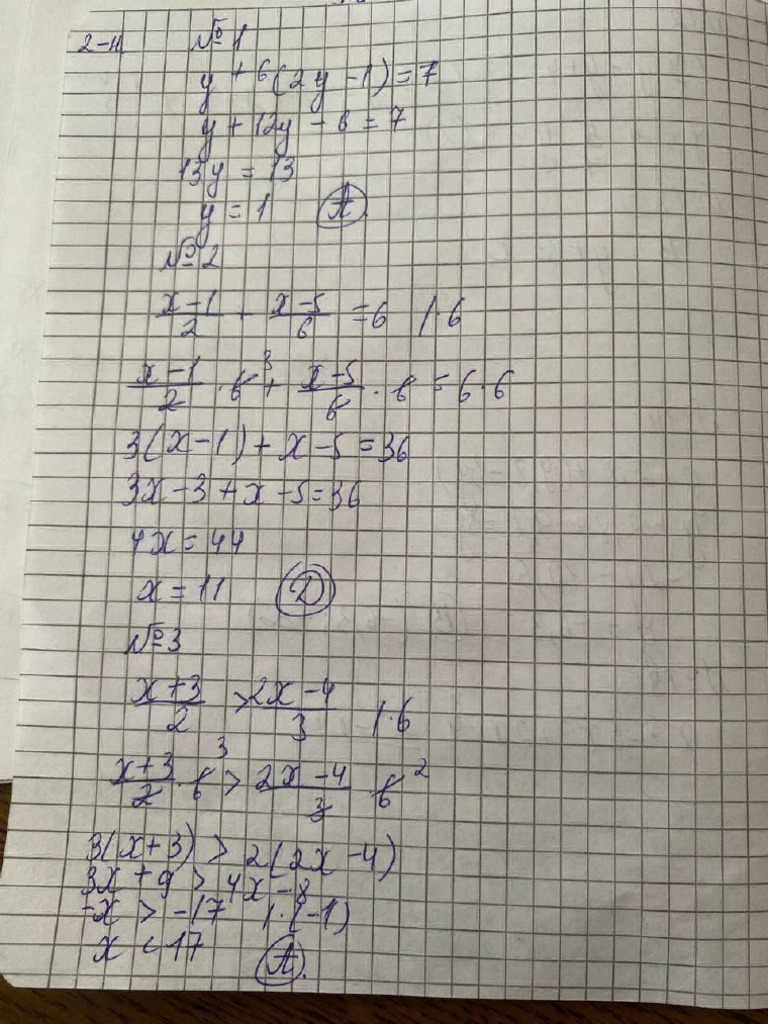 2-н № 1
y + 6(2y - 1) = 7
y + 12y - 6 = 7
13y = 13
y = 1 А.
№ 2
x-1/2 + x-5/6 = 6 | · 6
x-1/2 · 6 ³ + x-5/6 · 6 = 6 · 6
3(x - 1) + x - 5 = 36
3x - 3 + x - 5 = 36
4x = 44
x = 11 Д
№ 3
x+3/2 > 2x-4/3 | · 6
x+3/2 · 6 ³ > 2x-4/3 6 ²
3(x + 3) > 2(2x - 4)
3x + 9 > 4x - 8
-x > -17 | · (-1)
x < 17 А.